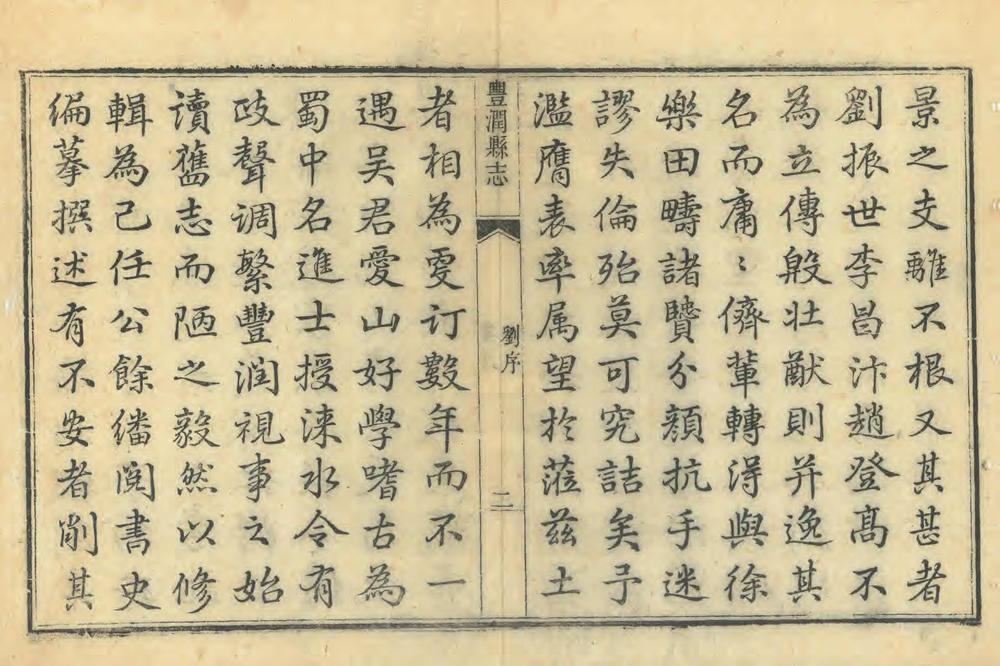 景之支離不根又其甚者
劉振世李昌汴趙登高不
為立傳殷壯猷則并逸其
名而庸〻儕輩轉得與徐
樂田疇諸賢分顏抗手迷
謬失倫殆莫可究詰矣予
濫膺表率属望於蒞茲土
豐潤縣志
劉序
二
者相為訂數年而不一
遇吴君愛山好學嗜古為
蜀中名進士授淶水令有
政聲調繁豐润視事之始
讀舊志而陋之毅然以修
輯為己任公餘繙閲書史
編摹撰述有不安者削其